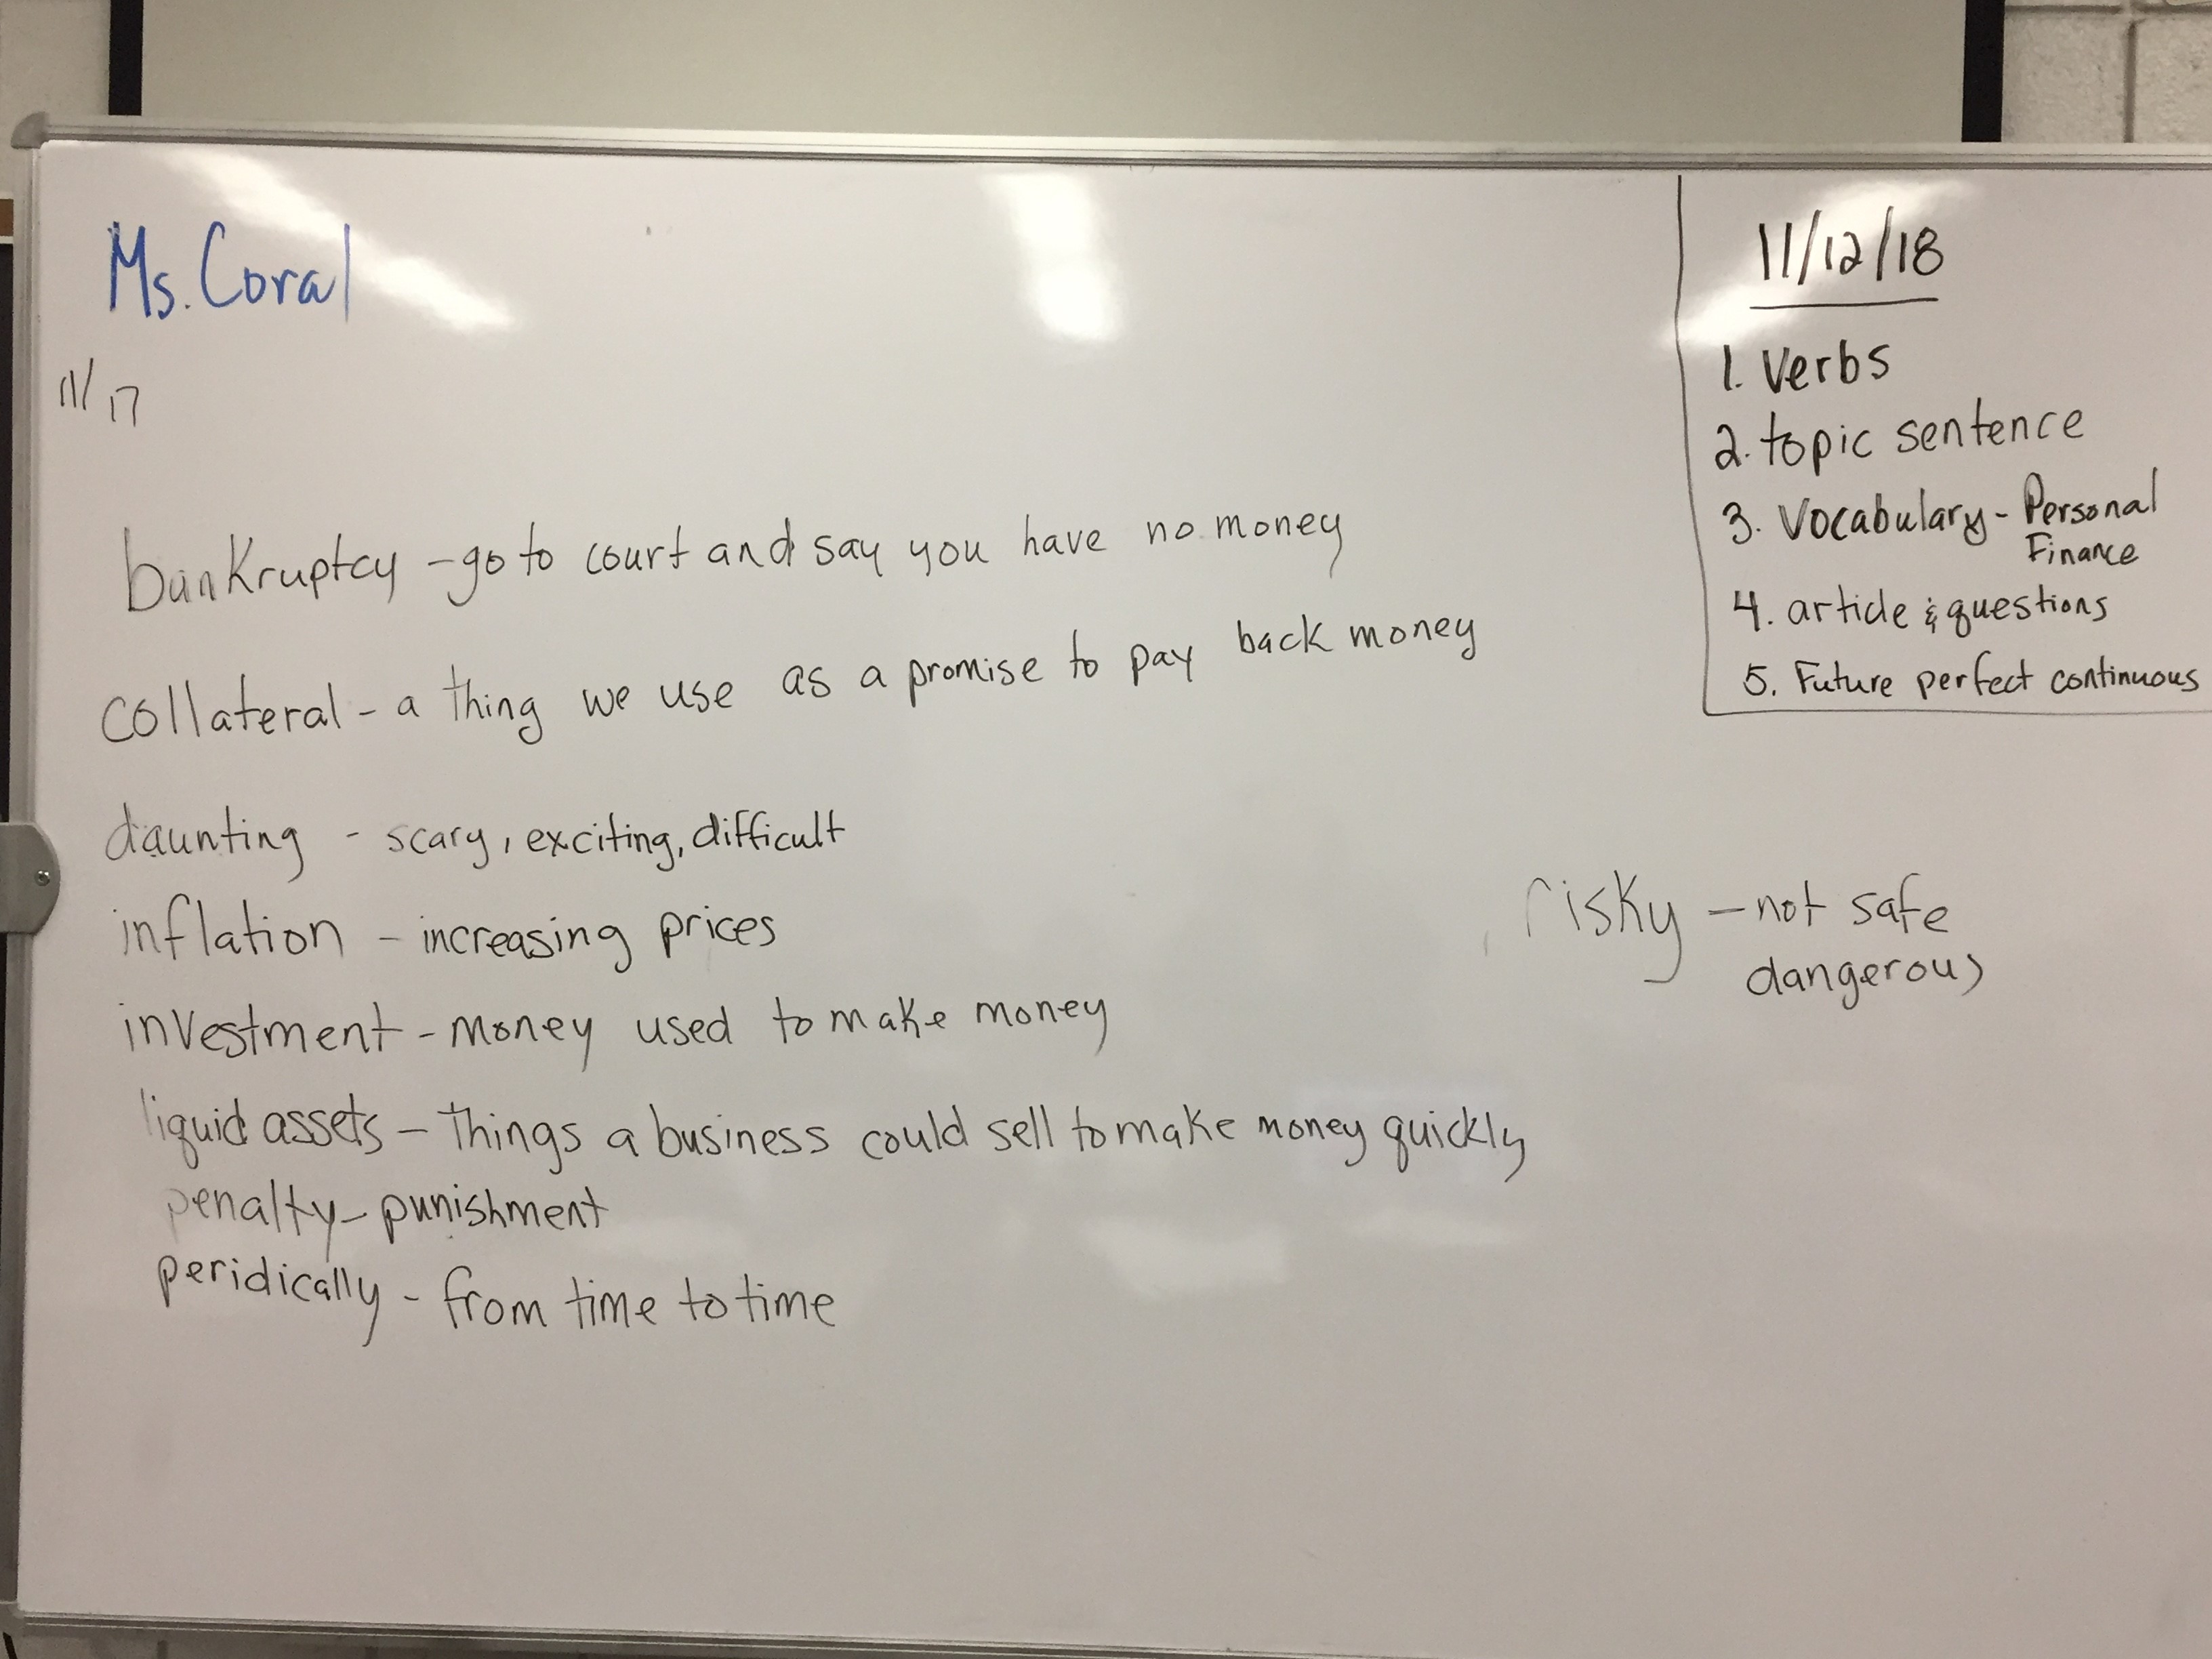 Ms. Coral
11/17
bankruptcy - go to court and say you have no money
collateral - a thing we use as a promise to pay back money
daunting - scary, exciting, difficult
inflation - increasing prices
investment - money used to make money
liquid assets - things a business could sell to make money quickly
penalty - punishment
peridically - from time to time
risky - not safe
dangerous
11/12/18
1. Verbs
2. topic sentence
3. Vocabulary - Personal
Finance
4. article & questions
5. Future perfect continuous